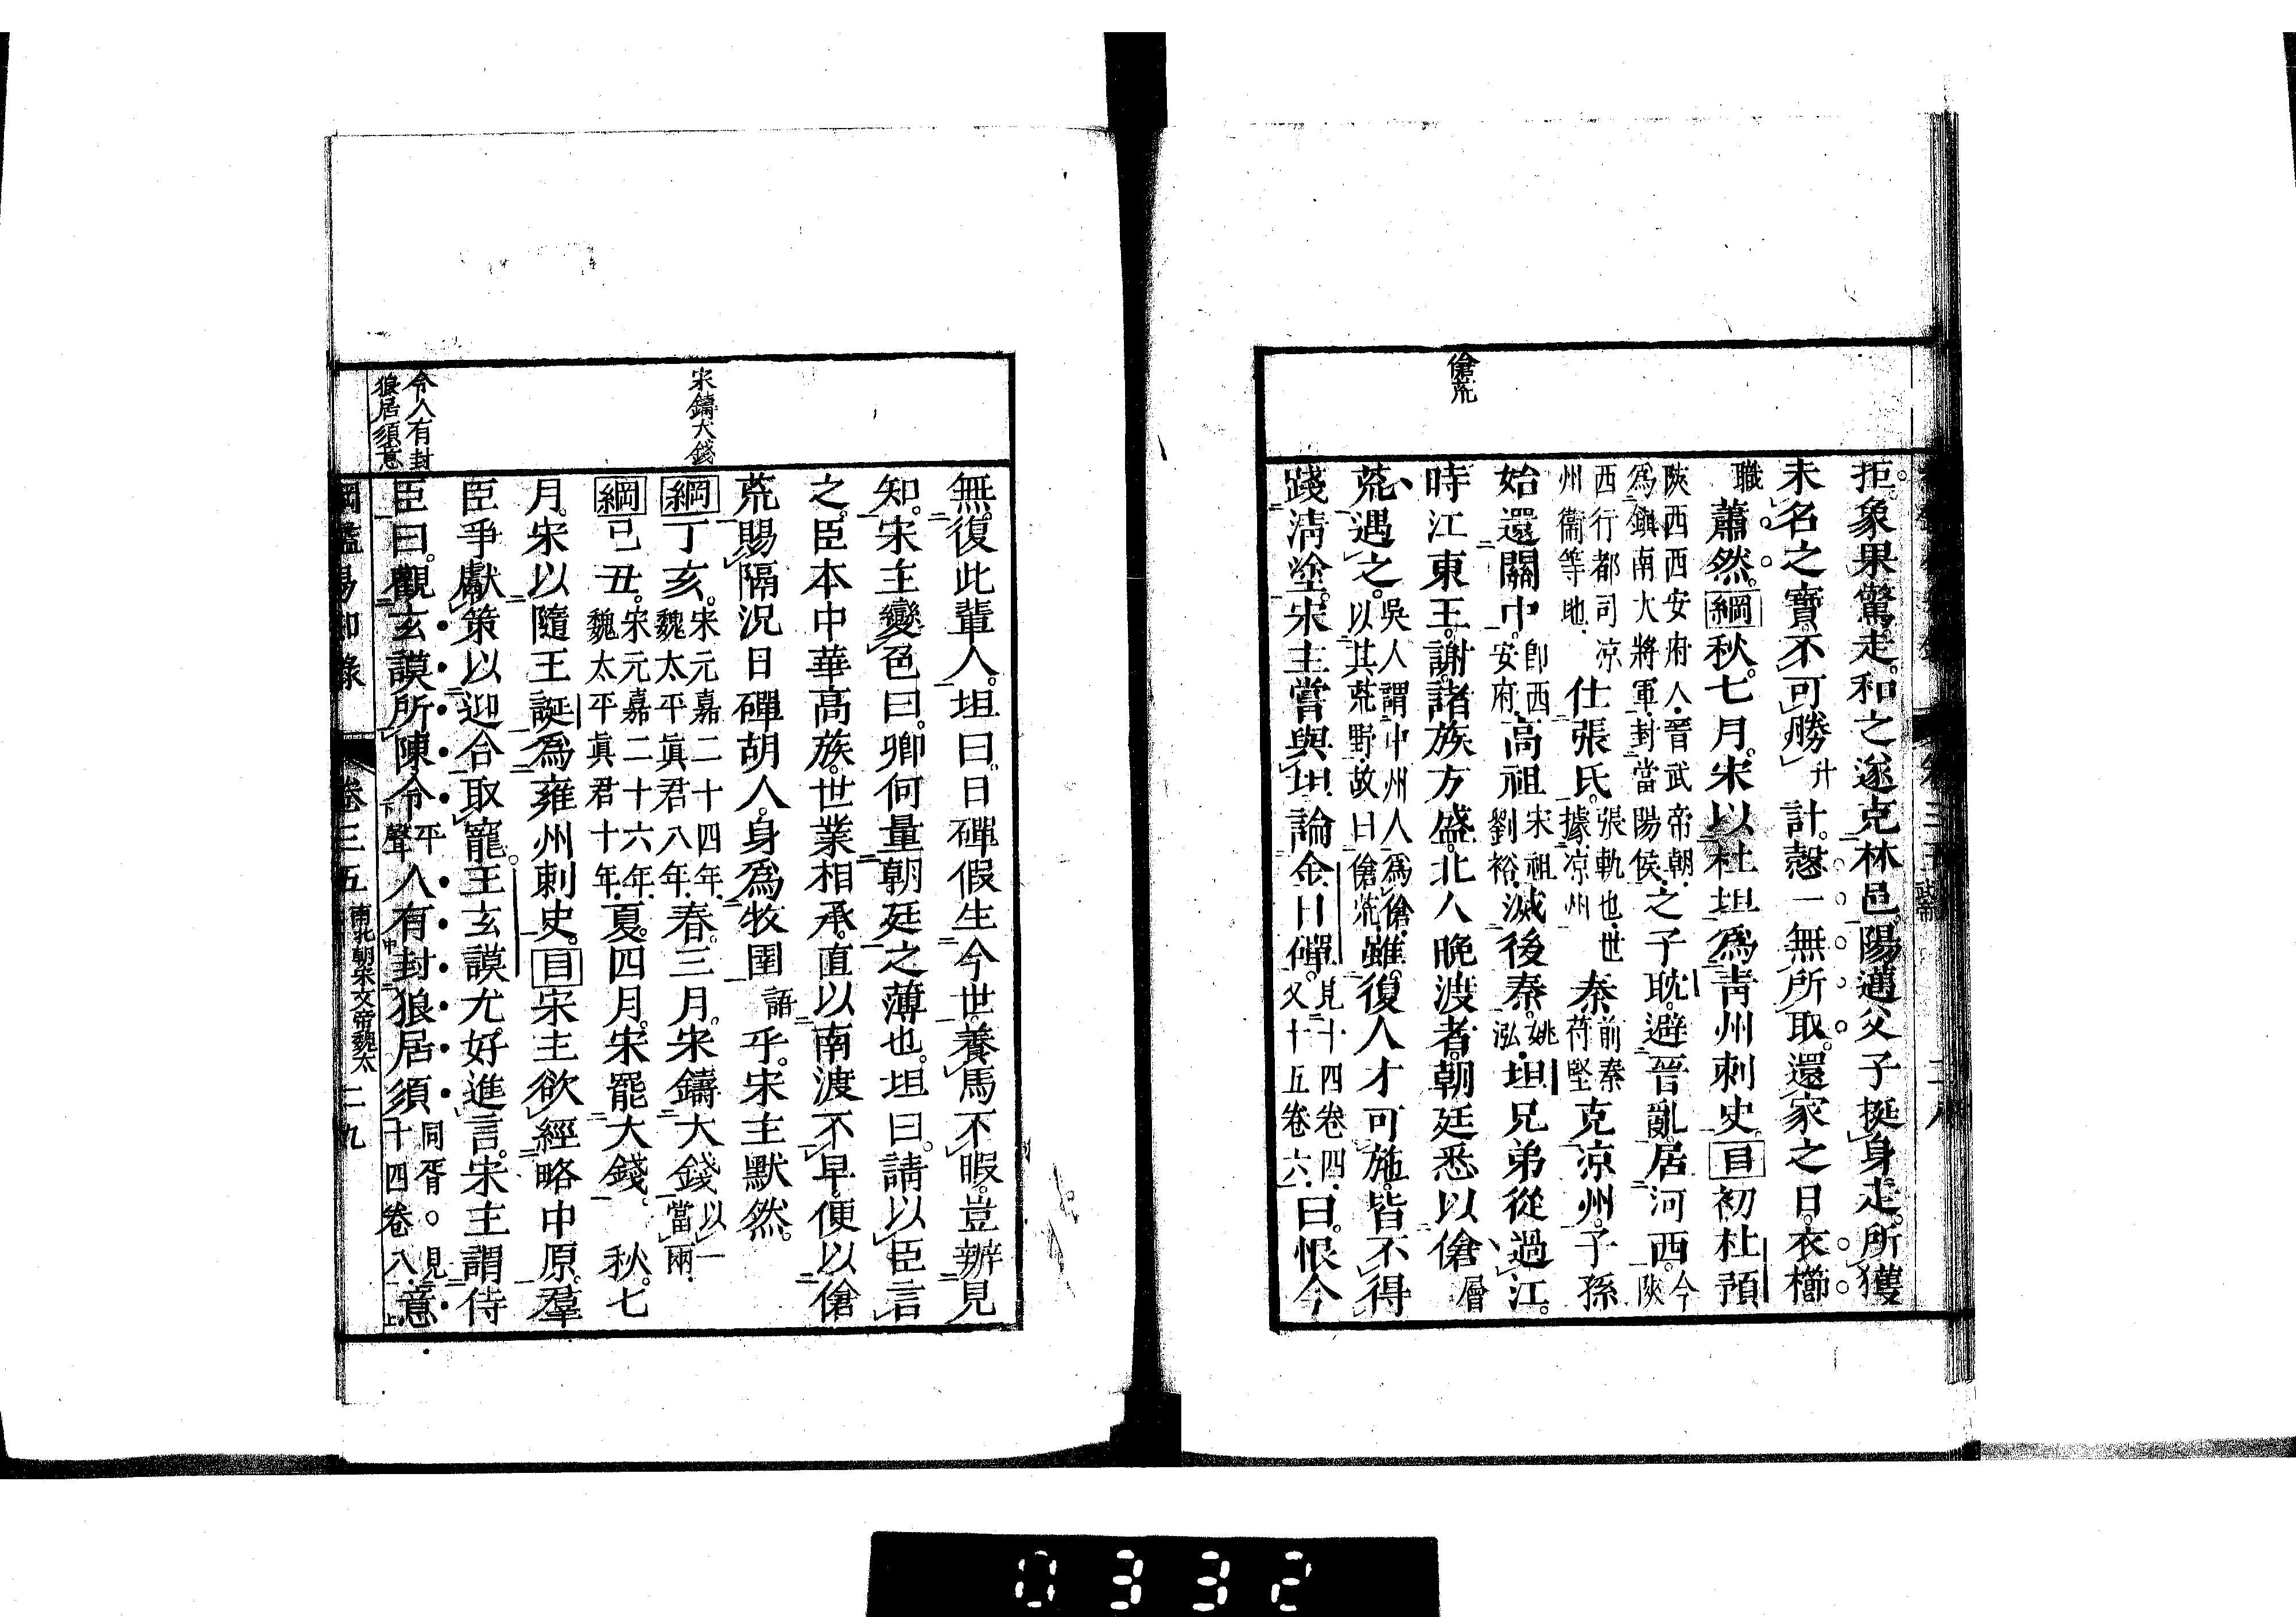 傖荒
拒。象果驚走。和之遂克林邑。陽邁父子挺身走。所獲
未名之寶。不可勝升計。愨一無所取。還家之日。衣櫛
職蕭然。綱秋。七月。宋以杜坦爲靑州刺史。目初杜預
陝西西安府人。晉武帝朝。爲鎭南大將軍。封當陽侯。之子耽。避晉亂。居河西。今陝
西行都司凉州衞等地。仕張氏。張軌也。世據凉州。秦前秦苻堅克凉州。子孫
始還關中。卽西安府。高祖宋祖劉裕。滅後秦。姚泓。坦兄弟從過江。
時江東王。謝。諸族方盛。北人晩渡者。朝廷悉以傖層
荒遇之。吳人謂中州人爲傖。以其荒野。故曰傖荒。雖復人才可施。皆不得
踐淸塗。宋主嘗與坦論金日磾。見十四卷四。又十五卷六。曰。恨今
宋鑄大錢
令人有封狼居須意
無復此輩人。坦曰。日磾假生今世。養馬不暇。豈辦見
知。宋主變色曰。卿何量朝廷之薄也。坦曰。請以臣言
之。臣本中華高族。世業相承。直以南渡不早。便以傖
荒賜隔。況日磾胡人。身爲牧圉語乎。宋主默然。
綱丁亥。宋元嘉二十四年。魏太平眞君八年。春。三月。宋鑄大錢。以一當兩。
綱己丑。宋元嘉二十六年。魏太平眞君十年。夏。四月。宋罷大錢。秋。七
月。宋以隨王誕爲雍州刺史。目宋主欲經略中原。羣
臣爭獻策以迎合取寵。王玄謨尤好進言。宋主謂侍
臣曰。觀玄謨所陳。令平聲人有封狼居須同胥。見十四卷八。意
綱鑑易知錄 卷三五 南北朝宋文帝魏太 二九